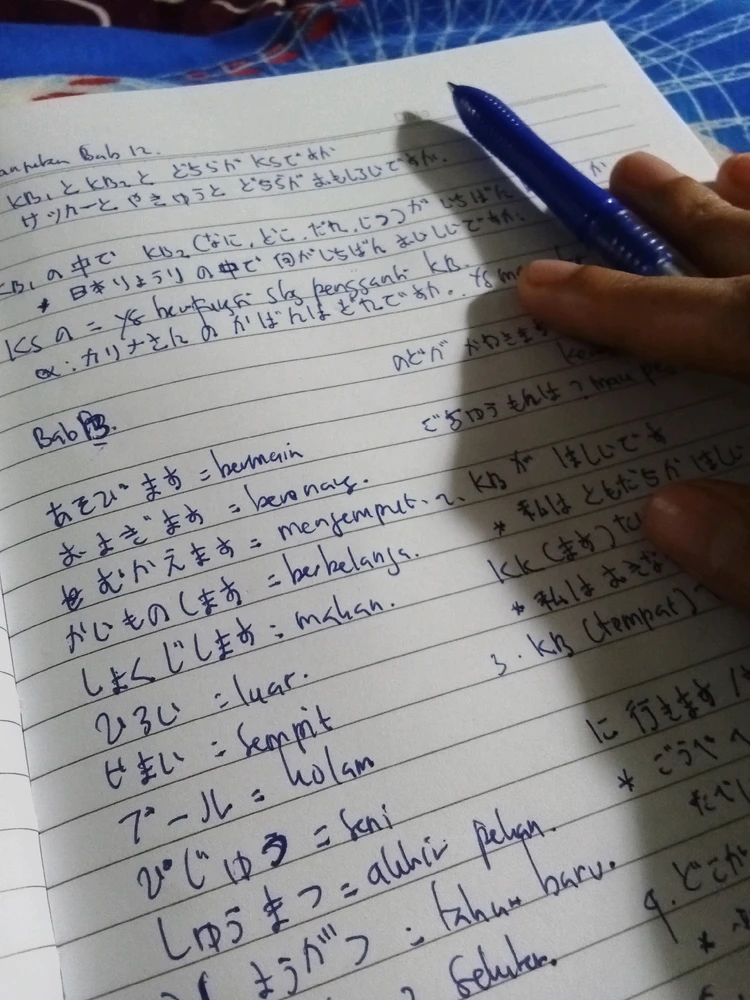 Bab 12.
KB₁ と KB₂ と どちらが KSですか
サッカーと やきゅうと どちらが おもしろいですか.
KB₁ の中で KB₂ (なに, どこ, だれ, いつ) が いちばん か
* 日本りょうり の中で 何がいちばん おいしいですか.
KS の = yg berfungsi sbg pengganti KB.
α: カリナさんの かばんは どれですか.
のどが かわきます
Bab 13.
ごちゅうもんは?
あそびます = bermain
およぎます = berenang.
むかえます = menjemput. 2. KB が ほしいです
かいものします = berbelanja. * 私は ともだちが ほしい
しょくじします = makan. KK (ます) たい
ひろい = luar. * 私は
せまい = sempit 3. KB (tempat)
プール = kolam に 行きます
びじゅつ = seni * こうべ へ
しゅうまつ = akhir pekan. たべ
しょうがつ = tahun baru. 4. どこか